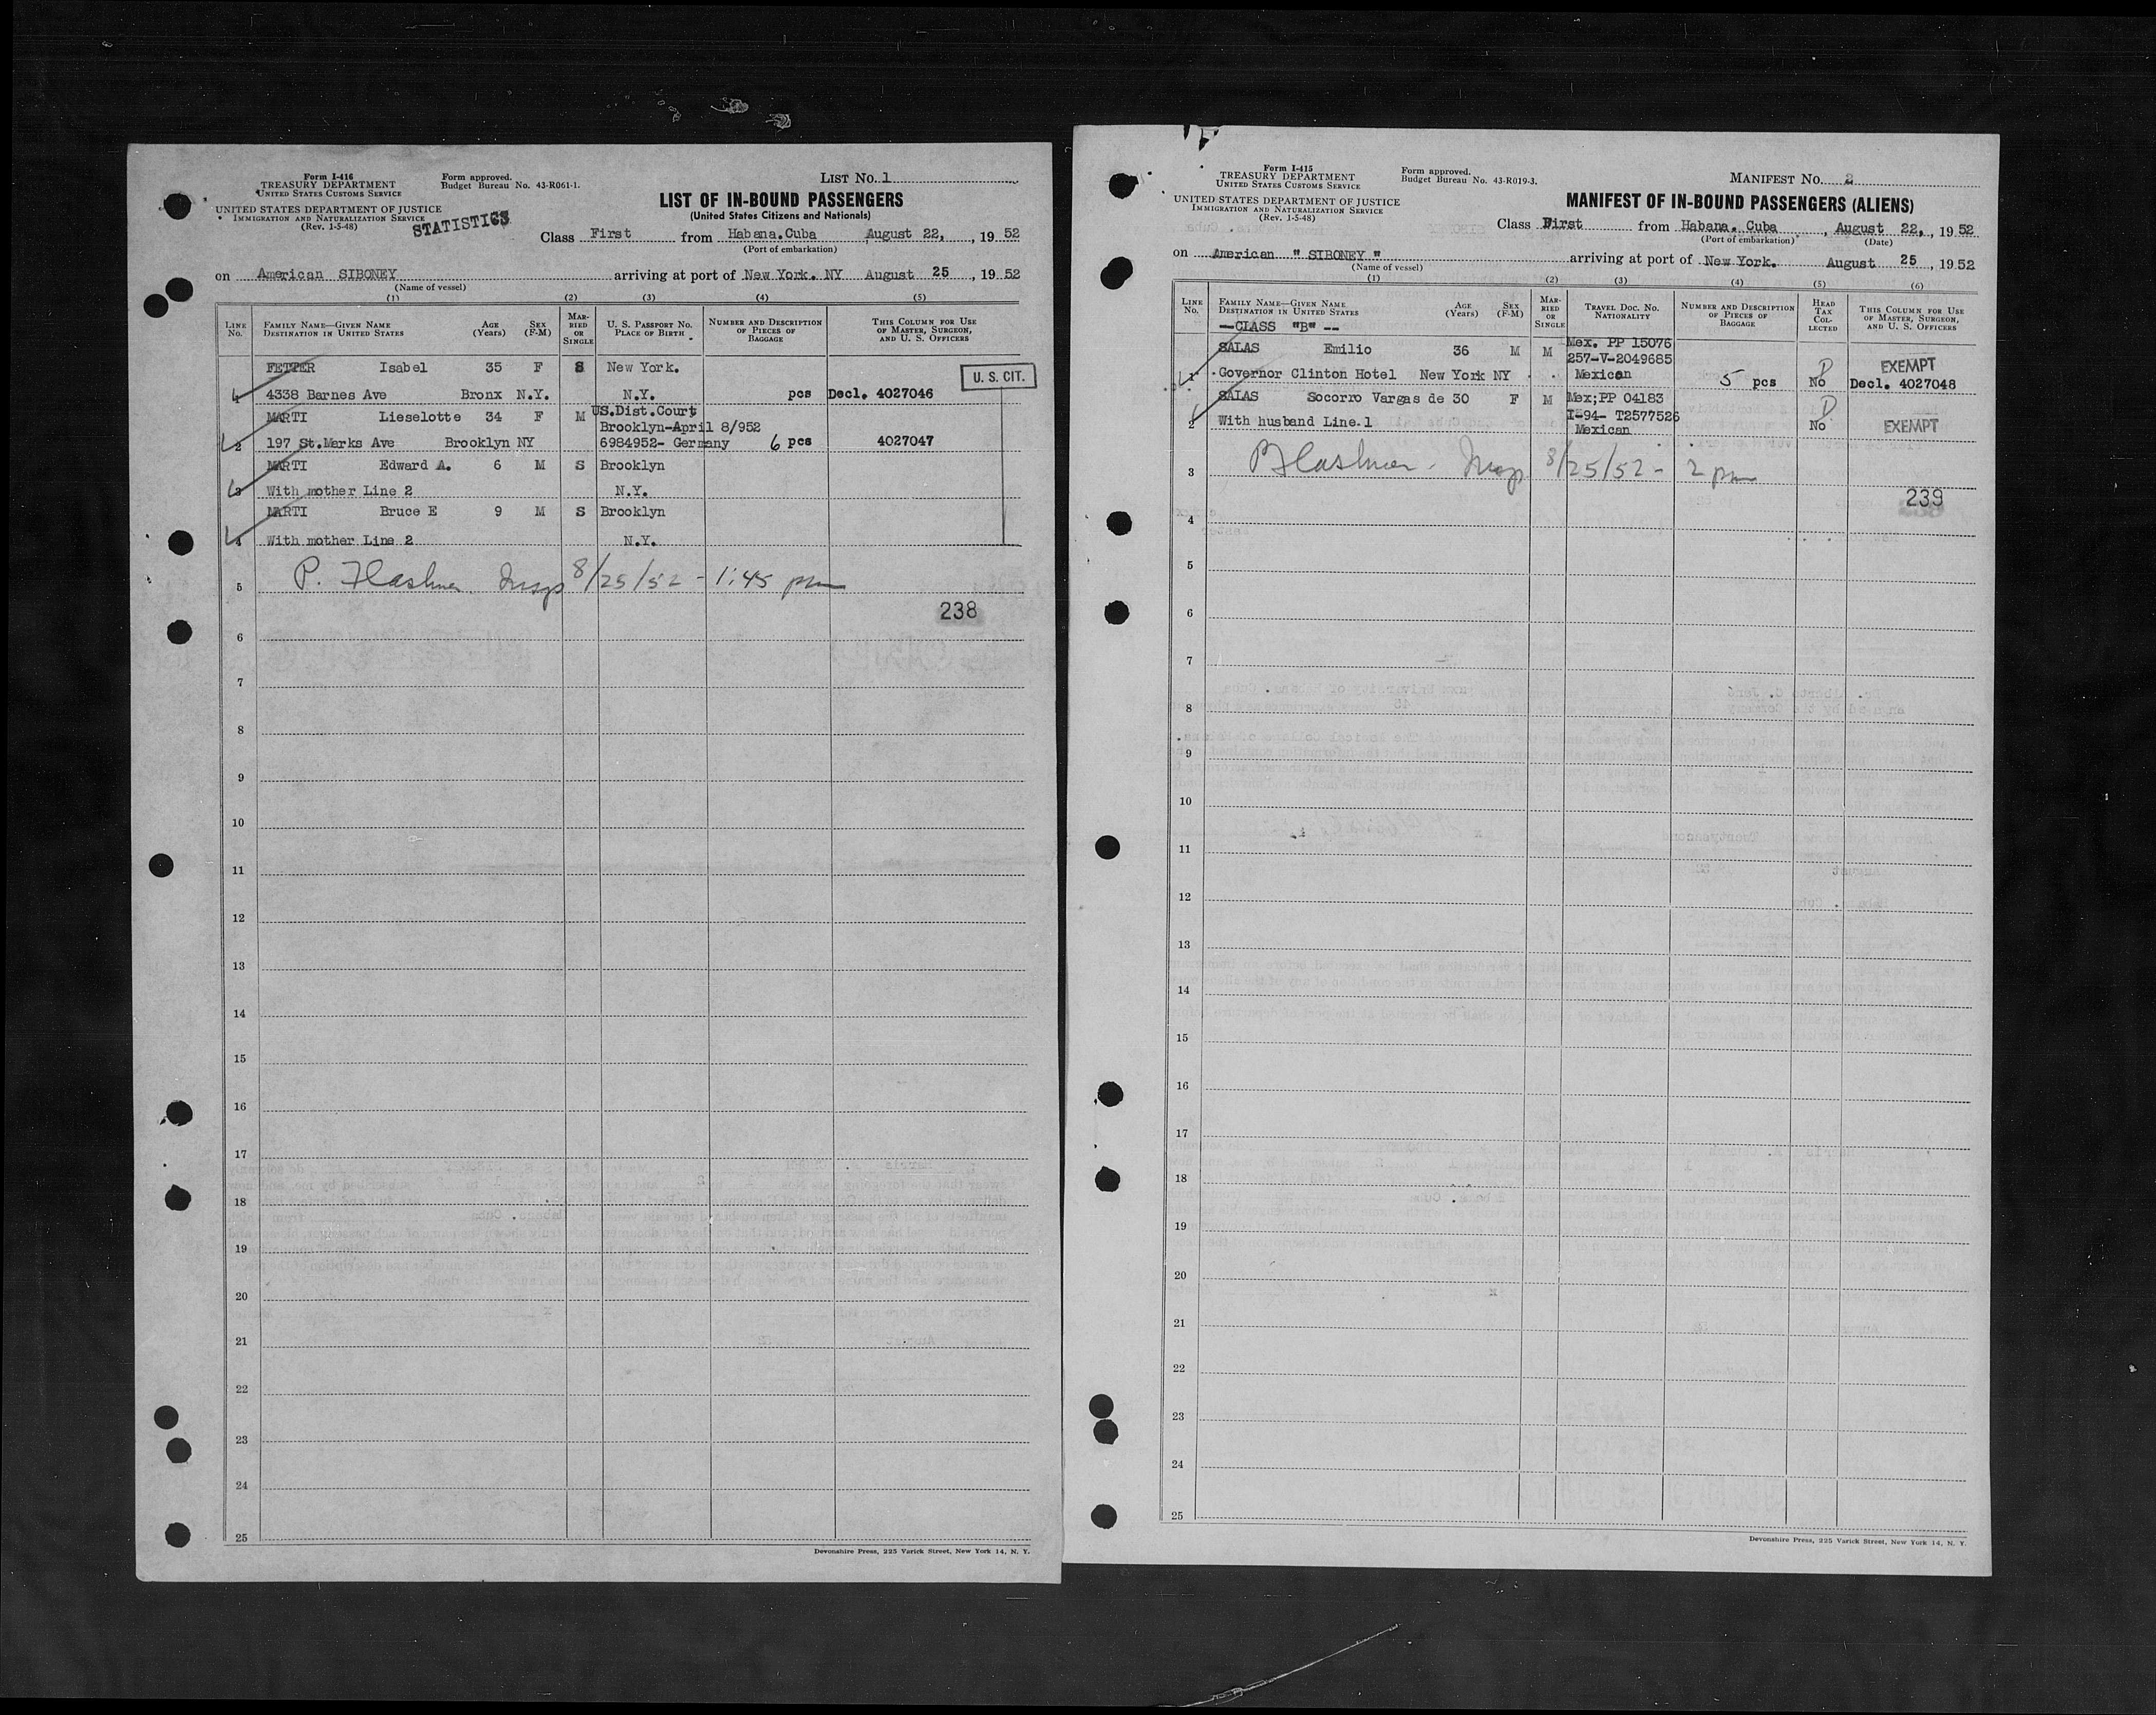 Form I-416
TREASURY DEPARTMENT
UNITED STATES CUSTOMS SERVICE
UNITED STATES DEPARTMENT OF JUSTICE
IMMIGRATION AND NATURALIZATION SERVICE
(Rev. 1-5-48)
Form approved.
Budget Bureau No. 43-R061-1.
STATISTICS
LIST No. 1
LIST OF IN-BOUND PASSENGERS
(United States Citizens and Nationals)
Class First from Habana.Cuba August 22, , 19 52
(Port of embarkation)
on American SIBONEY arriving at port of New York. NY August 25 , 19 52
(Name of vessel)
(1) (2) (3) (4) (5)
LINE No. FAMILY NAME—GIVEN NAME DESTINATION IN UNITED STATES AGE (Years) SEX (F-M) MARRIED OR SINGLE U. S. PASSPORT NO. PLACE OF BIRTH NUMBER AND DESCRIPTION OF PIECES OF BAGGAGE THIS COLUMN FOR USE OF MASTER, SURGEON, AND U. S. OFFICERS
FETTER Isabel 35 F S New York.
U. S. CIT.
4338 Barnes Ave Bronx N.Y. N.Y. pcs Decl. 4027046
MARTI Lieselotte 34 F M US.Dist.Court
Brooklyn-April 8/952
2 197 St.Marks Ave Brooklyn NY 6984952- Germany 6 pcs 4027047
MARTI Edward A. 6 M S Brooklyn
3 With mother Line 2 N.Y.
MARTI Bruce E 9 M S Brooklyn
4 With mother Line 2 N.Y.
5 P. Flashner Insp 8/25/52 - 1:45 pm
238
6
7
8
9
10
11
12
13
14
15
16
17
18
19
20
21
22
23
24
25
Devonshire Press, 225 Varick Street, New York 14, N. Y.
Form I-415
TREASURY DEPARTMENT
UNITED STATES CUSTOMS SERVICE
UNITED STATES DEPARTMENT OF JUSTICE
IMMIGRATION AND NATURALIZATION SERVICE
(Rev. 1-5-48)
Form approved.
Budget Bureau No. 43-R019-3.
MANIFEST No. 2
MANIFEST OF IN-BOUND PASSENGERS (ALIENS)
Class First from Habana. Cuba , August 22, , 19 52
(Port of embarkation) (Date)
on American " SIBONEY " arriving at port of New York. August 25 , 19 52
(Name of vessel)
(1) (2) (3) (4) (5) (6)
LINE No. FAMILY NAME—GIVEN NAME DESTINATION IN UNITED STATES AGE (Years) SEX (F-M) MARRIED OR SINGLE TRAVEL DOC. NO. NATIONALITY NUMBER AND DESCRIPTION OF PIECES OF BAGGAGE HEAD TAX COLLECTED THIS COLUMN FOR USE OF MASTER, SURGEON, AND U. S. OFFICERS
—CLASS "B" --
SALAS Emilio 36 M M Mex. PP 15076
257-V-2049685 EXEMPT
1 Governor Clinton Hotel New York NY Mexican 5 pcs No Decl. 4027048
SALAS Socorro Vargas de 30 F M Mex;PP 04183
I-94- T2577526
2 With husband Line.1 Mexican No EXEMPT
3 P Flashner - Insp 8/25/52 - 2 pm
239
4
5
6
7
8
9
10
11
12
13
14
15
16
17
18
19
20
21
22
23
24
25
Devonshire Press, 225 Varick Street, New York 14, N. Y.